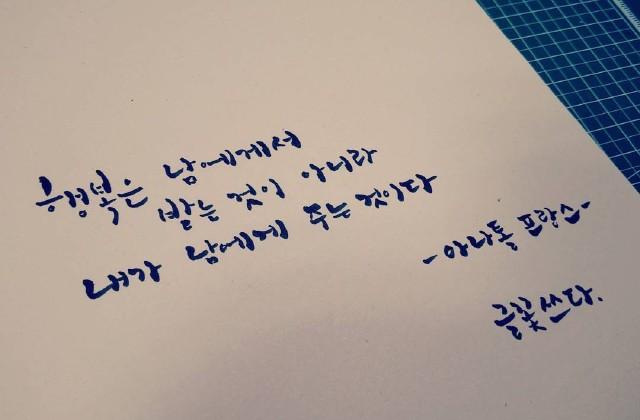 행복은 남에게서
받는 것이 아니라
내가 남에게 주는 것이다
- 아나톨 프랑스 -
글꽃 쓰다.